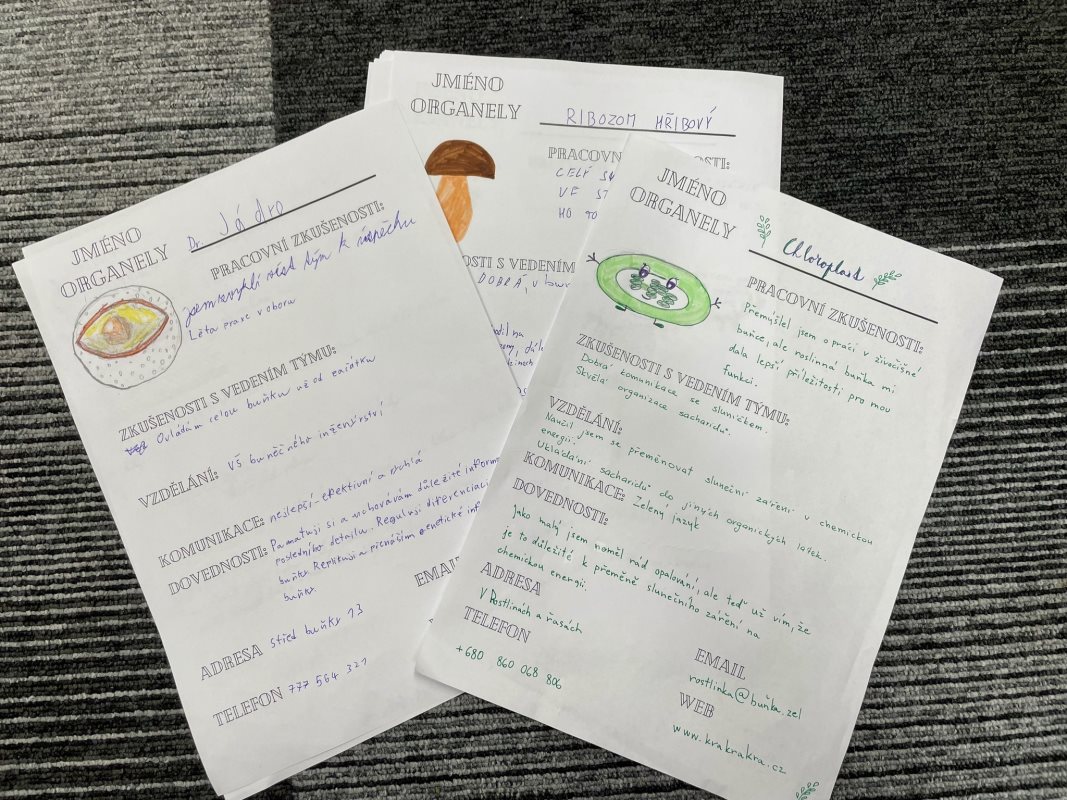 JMÉNO
ORGANELY
Dr. Jádro
PRACOVNÍ ZKUŠENOSTI:
jsem zvyklí vést tým k úspěchu
Léta praxe v oboru
ZKUŠENOSTI S VEDENÍM TÝMU:
Ovládám celou buňku už od začátku
VZDĚLÁNÍ: VŠ buněčného inženýrství
KOMUNIKACE: nejlepší efektivní a rychlá
DOVEDNOSTI: Pamatuji si a uchovávám důležité inform
posledního detailu. Reguluji diferenciaci
buňky. Replikuji a přenáším genetické inf
buňky.
ADRESA střed buňky 13
TELEFON 777 564 321
JMÉNO
ORGANELY
RIBOZOM HŘIBOVÝ
PRACOVN
DOSTI:
CELÝ
VE ST
HO TO
OSTI S VEDENÍM
DOBRÁ, v
EMAI
JMÉNO
ORGANELY
Chloroplast
PRACOVNÍ ZKUŠENOSTI:
Přemýšlel jsem o práci v živočišné
buňce, ale roslinná buňka mi
dala lepší příležitosti, pro mou
funkci.
ZKUŠENOSTI S VEDENÍM TÝMU:
Dobrá komunikace se sluníčkem.
Skvělá organizace sacharidů.
VZDĚLÁNÍ:
Naučil jsem se přeměnovat sluneční záření v chemickou
energii.
Ukládání sacharidů do jiných organických látek.
KOMUNIKACE: Zelený jazyk
DOVEDNOSTI:
Jako malý jsem neměl rád opalování, ale teď už vím, že
je to důležité k přeměně slunečního záření na
chemickou energii.
ADRESA
V Rostlinách a řasách
TELEFON
+680 860 068 806
EMAIL
rostlinka@buňka.zel
WEB
www.krakrakra.cz